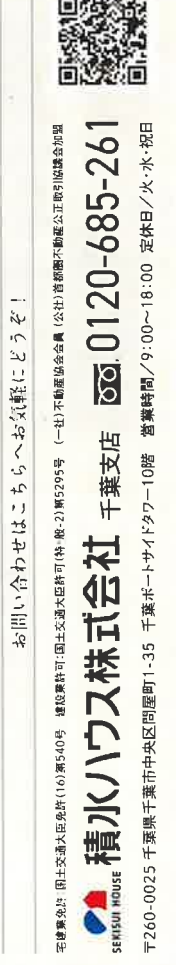 お問い合わせはこちらへお気軽にどうぞ！
宅建業免許：国土交通大臣免許(16)第540号 建設業許可：国土交通大臣許可(特・般-2)第5295号 (一社)不動産協会会員 (公社)首都圏不動産公正取引協議会加盟
SEKISUI HOUSE 積水ハウス株式会社 千葉支店 0120-685-261
〒260-0025 千葉県千葉市中央区問屋町1-35 千葉ポートサイドタワー10階 営業時間／9:00〜18:00 定休日／火・水・祝日